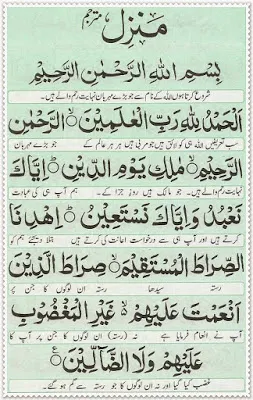 منزل مترجم
بِسْمِ اللهِ الرَّحْمٰنِ الرَّحِيْمِ
شروع کرتا ہوں اللہ کے نام سے جو بڑے مہربان نہایت رحم والے ہیں۔
اَلْحَمْدُ لِلّٰهِ رَبِّ الْعٰلَمِيْنَ ۙ الرَّحْمٰنِ
سب تعریفیں اللہ ہی کو لائق ہیں جو مربی ہیں ہر ہر عالم کے جو بڑے مہربان
الرَّحِيْمِ ۙ مٰلِكِ يَوْمِ الدِّيْنِ ؕ اِيَّاكَ
نہایت رحم والے ہیں۔ جو مالک ہیں روز جزا کے۔ ہم آپ ہی کی عبادت
نَعْبُدُ وَاِيَّاكَ نَسْتَعِيْنُ ؕ اِهْدِنَا
کرتے ہیں اور آپ ہی سے درخواست اعانت کی کرتے ہیں بتلا دیجئے ہم کو
الصِّرَاطَ الْمُسْتَقِيْمَ ۙ صِرَاطَ الَّذِيْنَ
رستہ سیدھا رستہ ان لوگوں کا جن پر
اَنْعَمْتَ عَلَيْهِمْ ۙ غَيْرِ الْمَغْضُوْبِ
آپ نے انعام فرمایا ہے نہ (رستہ) ان لوگوں کا جن پر آپ کا
عَلَيْهِمْ وَلَا الضَّآلِّيْنَ
غضب کیا گیا اور نہ ان لوگوں کا جو رستہ سے گم ہو گئے۔